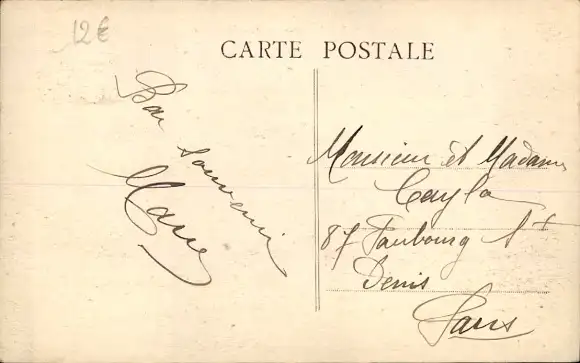 12€
CARTE POSTALE
Bon souvenir
Marie
Monsieur et Madame
Cayla
87 Faubourg St
Denis
Paris